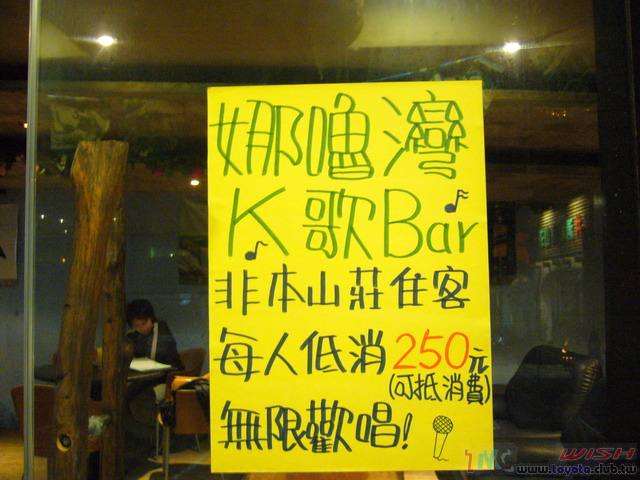 娜嚕灣
K歌Bar
非本山莊住客
每人低消250元
(可抵消費)
無限歡唱!
WISH
www.toyota.club.tw